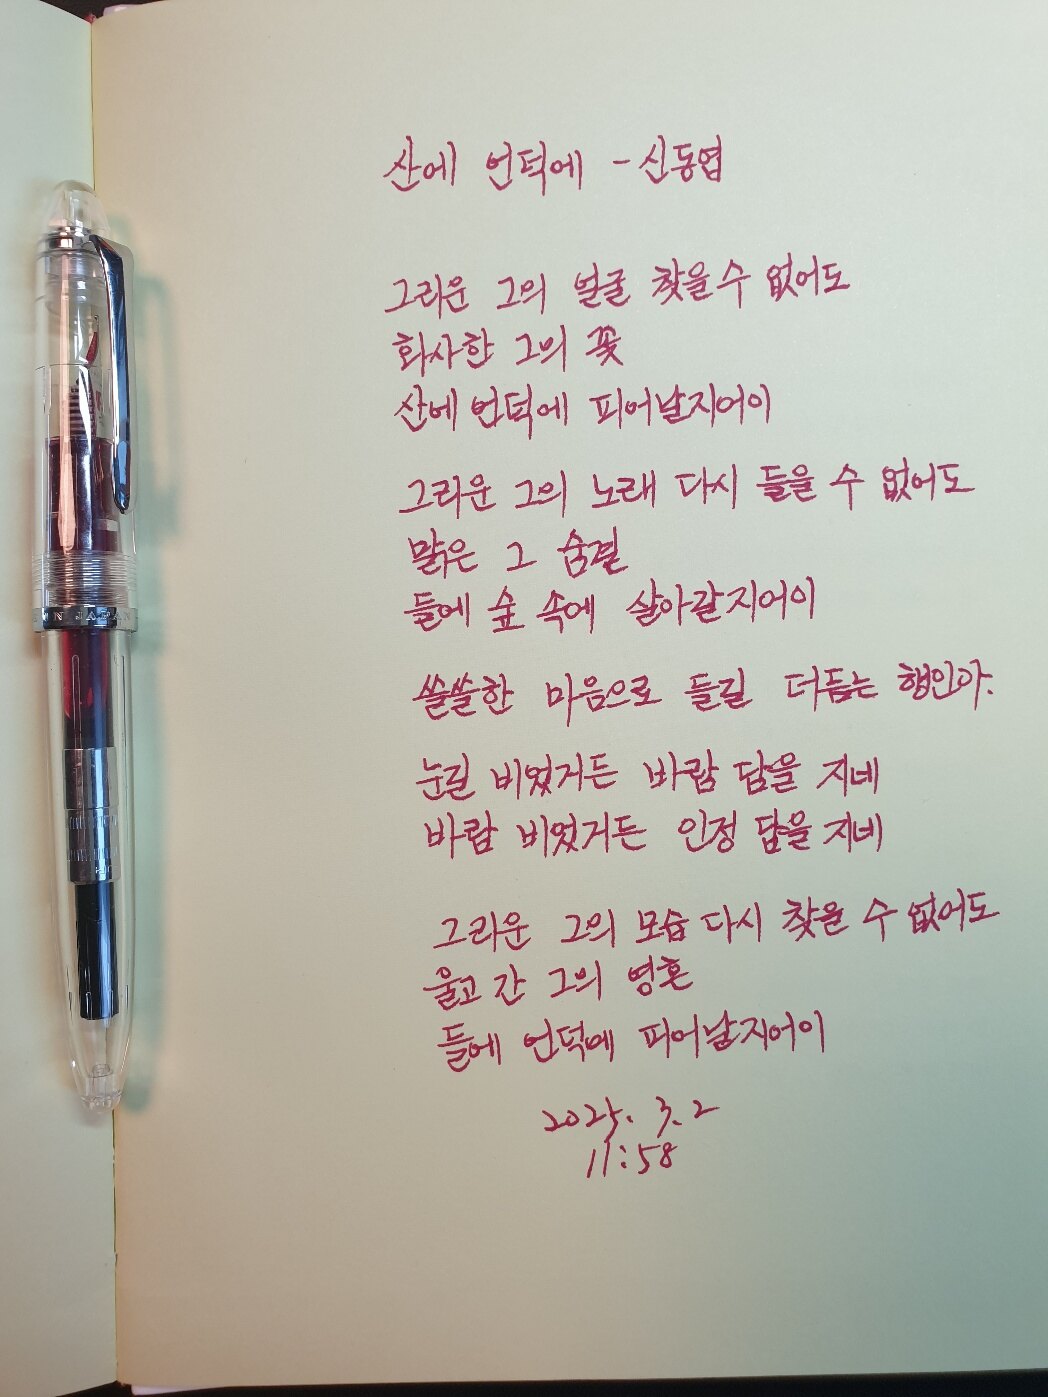 산에 언덕에 - 신동엽
그리운 그의 얼굴 찾을 수 없어도
화사한 그의 꽃
산에 언덕에 피어날지어이
그리운 그의 노래 다시 들을 수 없어도
맑은 그 숨결
들에 숲 속에 살아갈지어이
쓸쓸한 마음으로 들길 더듬는 행인아.
눈길 비었거든 바람 담을 지네
바람 비었거든 인정 담을 지네
그리운 그의 모습 다시 찾을 수 없어도
울고 간 그의 영혼
들에 언덕에 피어날지어이
2025. 3. 2
11:58
JAPAN